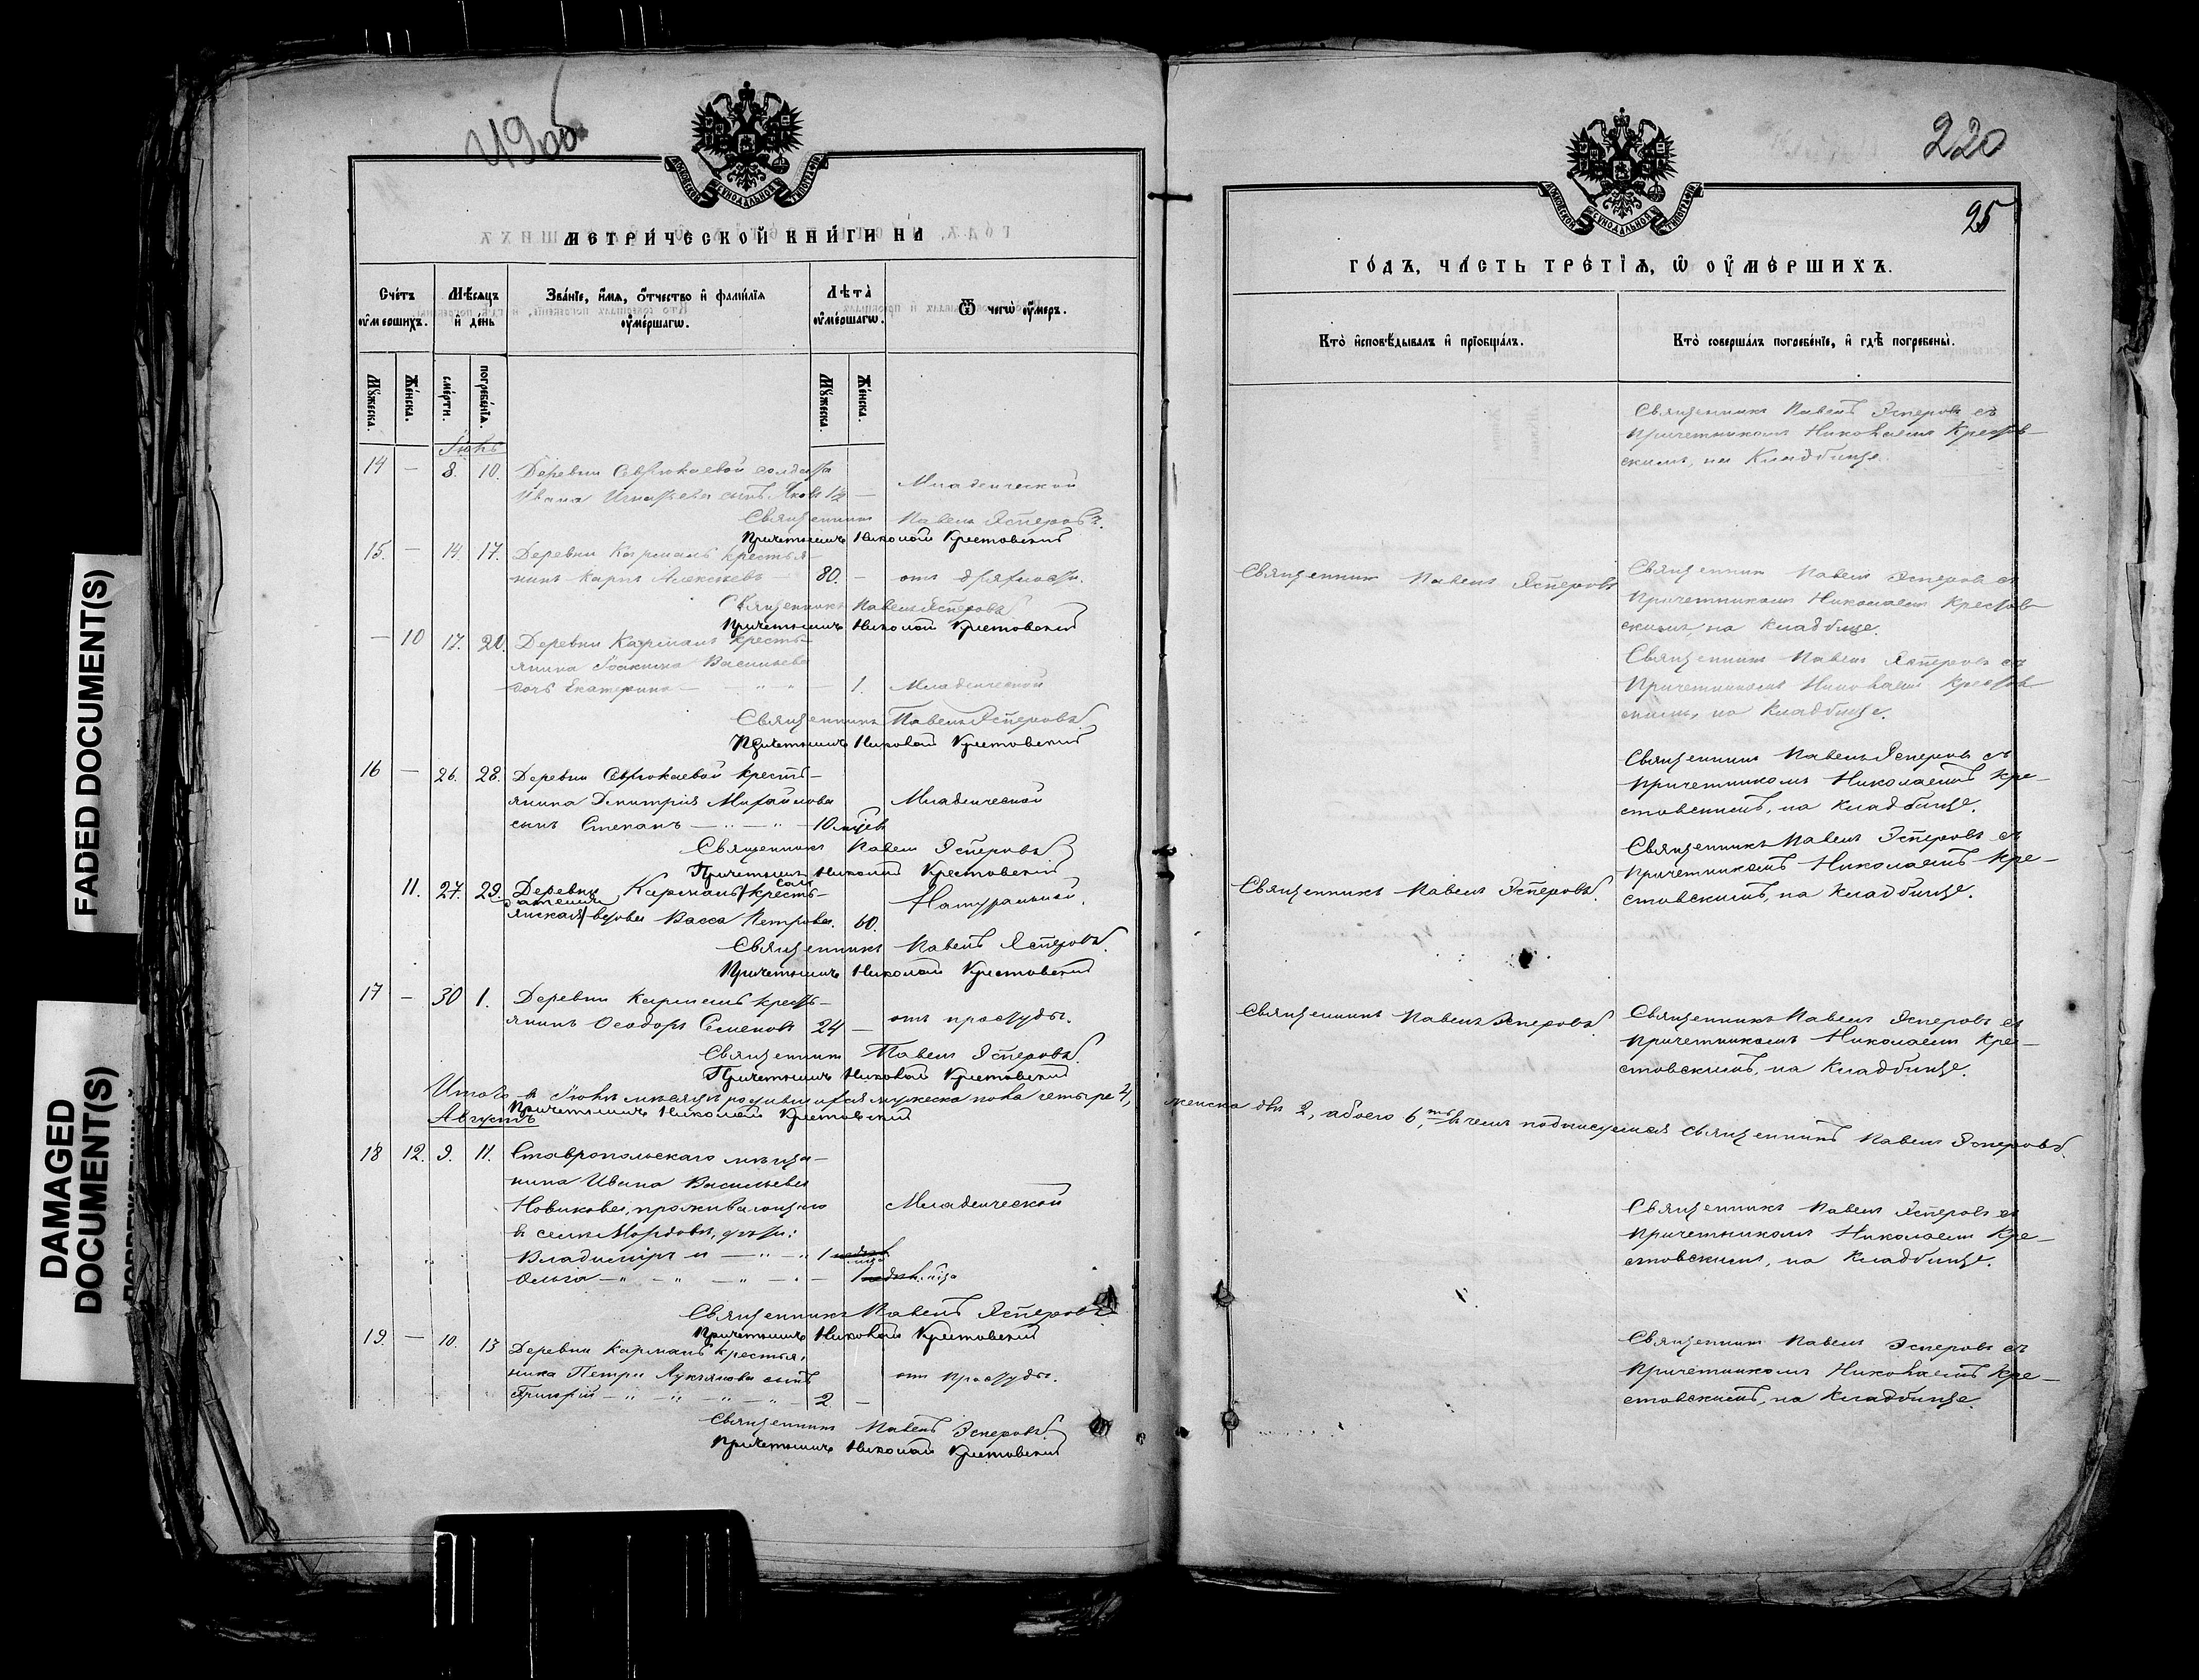 FADED DOCUMENT(S)
DAMAGED
DOCUMENT(S)
49 об
МОСКОВСКОЙ СѴНОДАЛЬНОЙ ТИПОГРАФІИ
МЕТРИ́ЧЕСКОЙ КНИ́ГИ НА
Сче́тъ оу҆ме́ршихъ.
Мѣ́сяцъ и҆ де́нь
Зва́нїе, и҆́мя, ѻ҆́тчество и҆ фами́лїя оу҆ме́ршагѡ.
Лѣта̀ оу҆ме́ршагѡ.
Ѿ чегѡ̀ оу҆́меръ.
Мꙋ́жеска.
Же́нска.
сме́рти.
погребе́нїѧ.
Мꙋ́жеска.
Же́нска.
Іюнь
14 — 8. 10. Деревни Севрюкаевой солдата
Ивана Игнатьева сынъ Яковъ 1/2 — Младенческой
Священникъ Павелъ Эсперовъ.
Причетникъ Николай Крестовскій
15. — 14. 17. Деревни Кармалъ крестья-
нинъ Карпъ Алексѣевъ — 80. — отъ дряхлости.
Священникъ Павелъ Эсперовъ
Причетникъ Николай Крестовскій
— 10 17. 20. Деревни Кармалъ кресть-
янина Іоакима Васильева
дочь Екатерина — 1. Младенческой
Священникъ Павелъ Эсперовъ.
Причетникъ Николай Крестовскій
16 — 26. 28. Деревни Севрюкаевой кресть-
янина Димитрія Михайлова Младенческой
сынъ Степанъ — 10 мѣсев
Священникъ Павелъ Эсперовъ
Причетникъ Николай Крестовскій
11. 27. 29. Деревни Кармалъ кресть-
янская вдова Васса Петрова. 60. Натуральной.
Священникъ Павелъ Эсперовъ.
Причетникъ Николай Крестовскій
17 — 30 1. Деревни Кармалъ кресть-
янинъ Ѳеодоръ Семеновъ 24 — отъ простуды.
Священникъ Павелъ Эсперовъ.
Причетникъ Николай Крестовскій
Итого въ Іюнѣ мѣсяцѣ родившихся мужеска пола четыре 4, женска двѣ 2, обоего 6, въ чемъ подписуемся Священникъ Павелъ Эсперовъ.
Причетникъ Николай Крестовскій
Августъ
18 12. 9. 11. Ставропольскаго мѣща-
нина Ивана Васильева
Новикова, проживающаго Младенческой
въ селѣ Мордовѣ, дѣти:
Владиміръ и — 1
Ольга — 1
Священникъ Павелъ Эсперовъ
Причетникъ Николай Крестовскій
19. — 10. 13 Деревни Кармалъ крестья-
нина Петра Лукьянова сынъ отъ простуды.
Григорій — 2. —
Священникъ Павелъ Эсперовъ.
Причетникъ Николай Крестовскій
220
25
МОСКОВСКОЙ СѴНОДАЛЬНОЙ ТИПОГРАФІИ
ГО́ДЪ, ЧА́СТЬ ТРЕ́ТЇѦ, Ѡ҆ ОУ҆МЕ́РШИХЪ.
Кто̀ и҆сповѣ́дывалъ и҆ прїѡбща́лъ.
Кто̀ соверша́лъ погребе́нїе, и҆ гдѣ̀ погребены̀.
Священникъ Павелъ Эсперовъ съ
Причетникомъ Николаемъ Крестов-
скимъ, на Кладбище.
Священникъ Павелъ Эсперовъ
Священникъ Павелъ Эсперовъ съ
Причетникомъ Николаемъ Крестов-
скимъ, на Кладбище.
Священникъ Павелъ Эсперовъ съ
Причетникомъ Николаемъ Крестов-
скимъ, на Кладбище.
Священникъ Павелъ Эсперовъ съ
Причетникомъ Николаемъ Кре-
стовскимъ, на Кладбище.
Священникъ Павелъ Эсперовъ.
Священникъ Павелъ Эсперовъ съ
Причетникомъ Николаемъ Кре-
стовскимъ, на Кладбище.
Священникъ Павелъ Эсперовъ.
Священникъ Павелъ Эсперовъ съ
Причетникомъ Николаемъ Кре-
стовскимъ, на Кладбище.
Священникъ Павелъ Эсперовъ съ
Причетникомъ Николаемъ Кре-
стовскимъ, на Кладбище.
Священникъ Павелъ Эсперовъ съ
Причетникомъ Николаемъ Кре-
стовскимъ, на Кладбище.